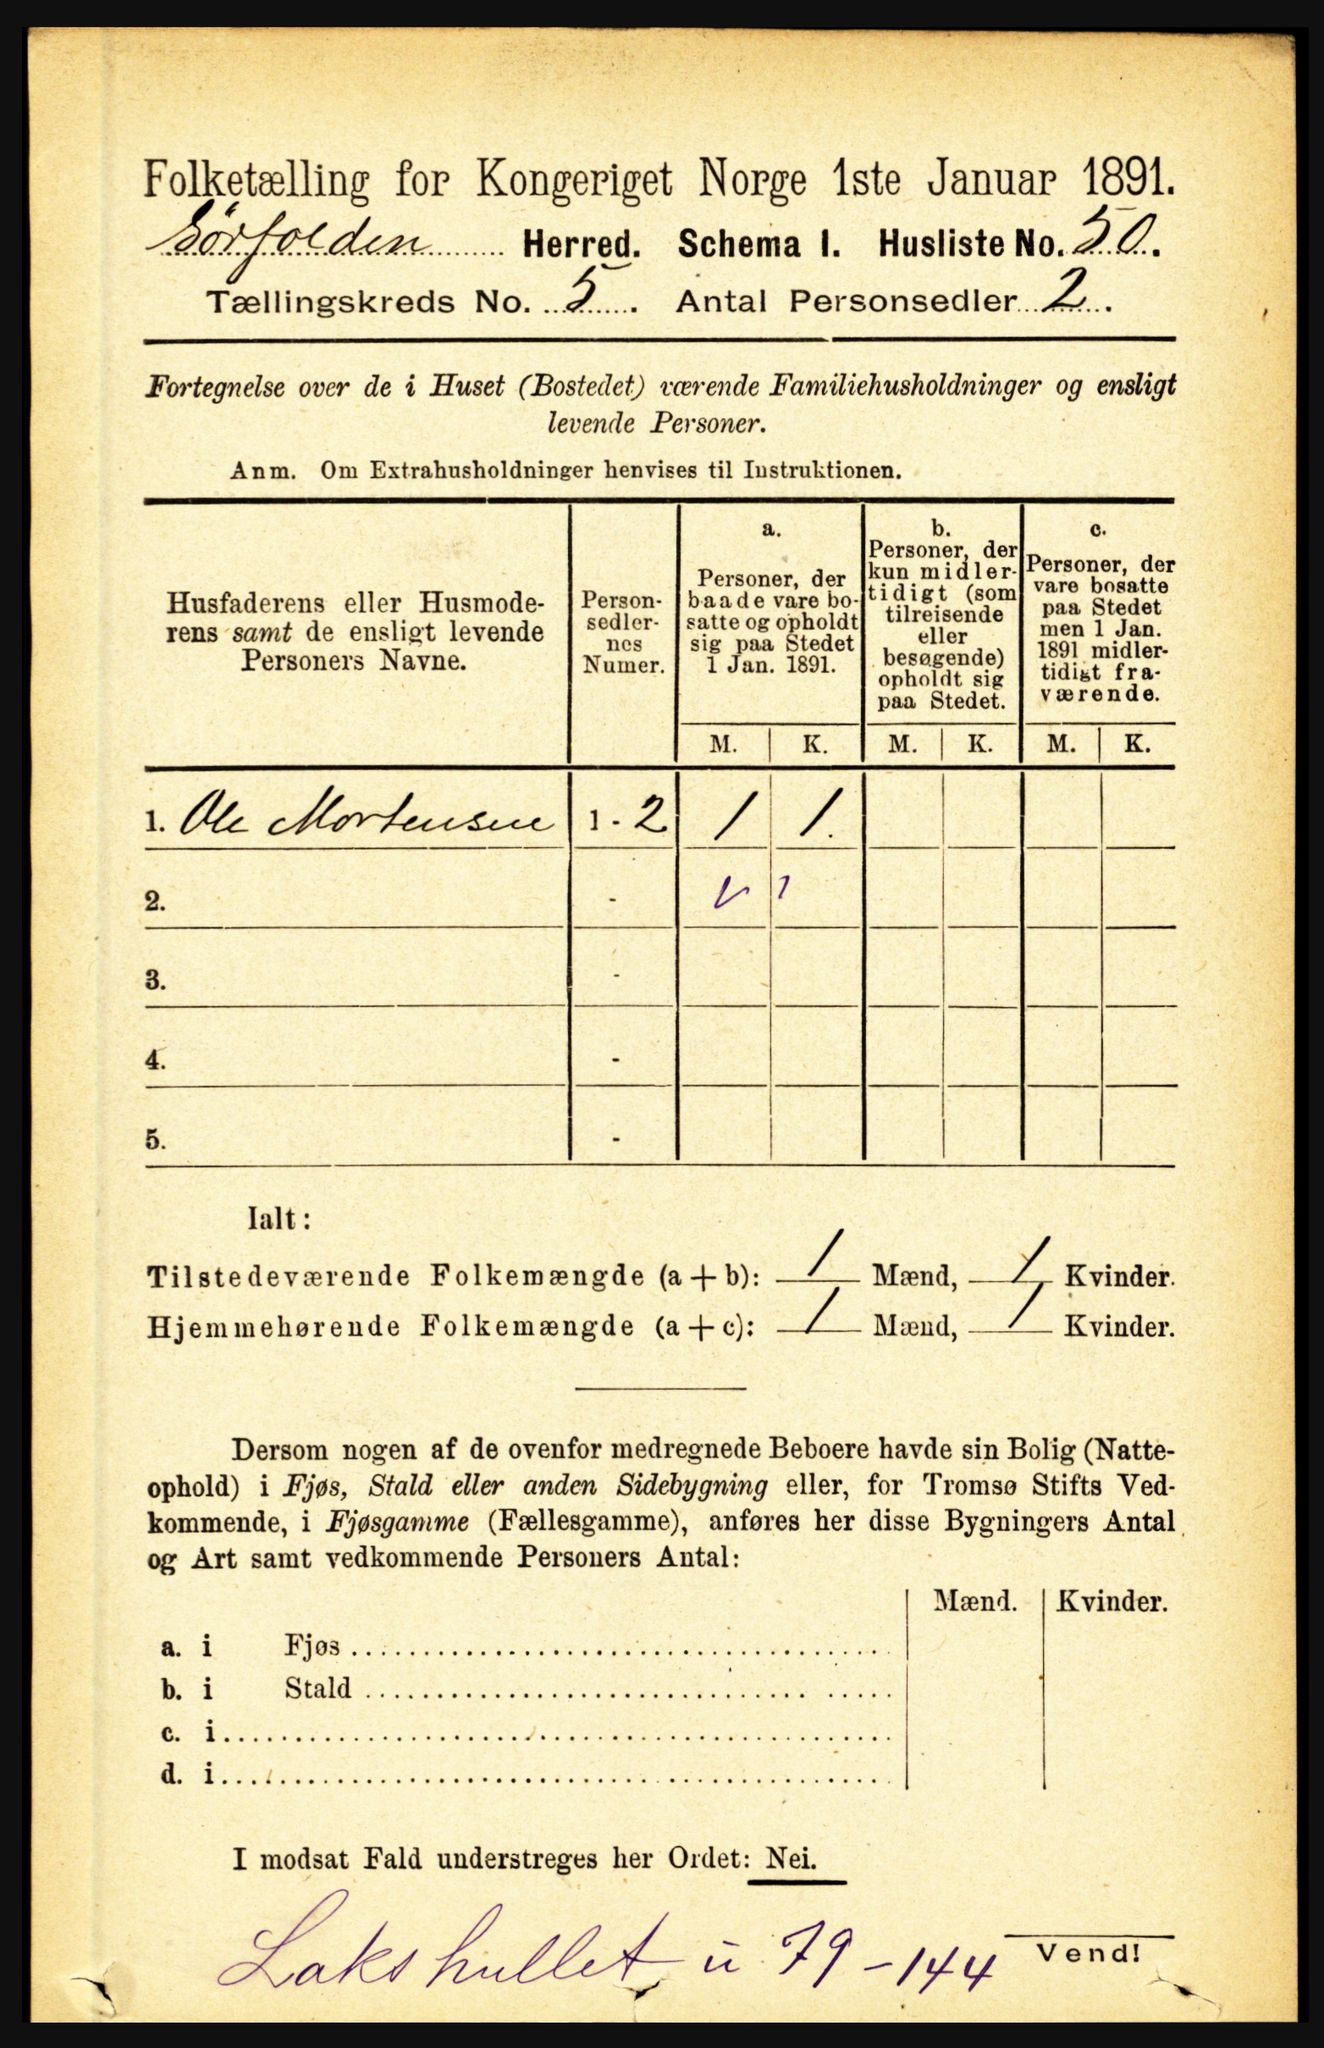 Folketælling for Kongeriget Norge 1ste Januar 1891.
Sørfolden Herred. Schema I. Husliste No. 50.
Tællingskreds No. 5. Antal Personsedler 2.
Fortegnelse over de i Huset (Bostedet) værende Familiehusholdninger og ensligt
levende Personer.
Anm. Om Extrahusholdninger henvises til Instruktionen.
Husfaderens eller Husmode-
rens samt de ensligt levende
Personers Navne.
Person-
sedler-
nes
Numer.
a.
Personer, der
baade vare bo-
satte og opholdt
sig paa Stedet
1 Jan. 1891.
b.
Personer, der
kun midler-
tidigt (som
tilreisende
eller
besøgende)
opholdt sig
paa Stedet.
c.
Personer, der
vare bosatte
paa Stedet
men 1 Jan.
1891 midler-
tidigt fra-
værende.
M. K. M. K. M. K.
1. Ole Mortensen 1 - 2 1 1.
2. -
3. -
4. -
5. -
Ialt:
Tilstedeværende Folkemængde (a + b): 1 Mænd, 1 Kvinder.
Hjemmehørende Folkemængde (a + c): 1 Mænd, 1 Kvinder.
Dersom nogen af de ovenfor medregnede Beboere havde sin Bolig (Natte-
ophold) i Fjøs, Stald eller anden Sidebygning eller, for Tromsø Stifts Ved-
kommende, i Fjøsgamme (Fællesgamme), anføres her disse Bygningers Antal
og Art samt vedkommende Personers Antal:
Mænd. Kvinder.
a. i Fjøs
b. i Stald
c. i
d. i
I modsat Fald understreges her Ordet: Nei.
Lakshullet u 79-144
Vend!